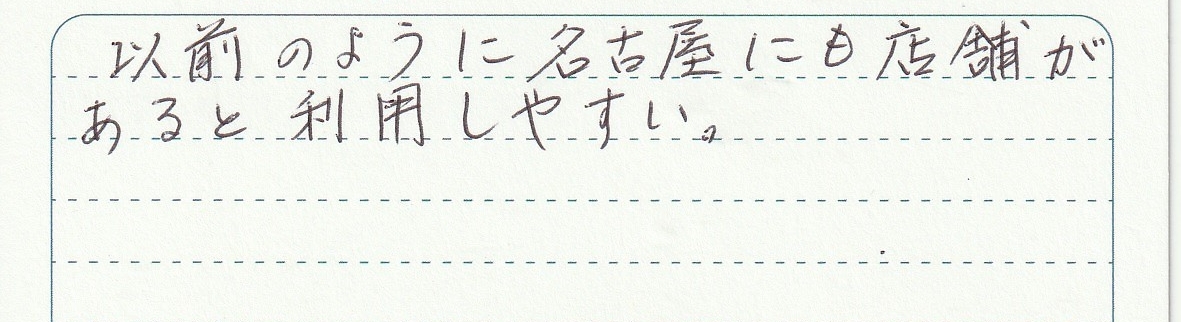 以前のように名古屋にも店舗が
あると利用しやすい。